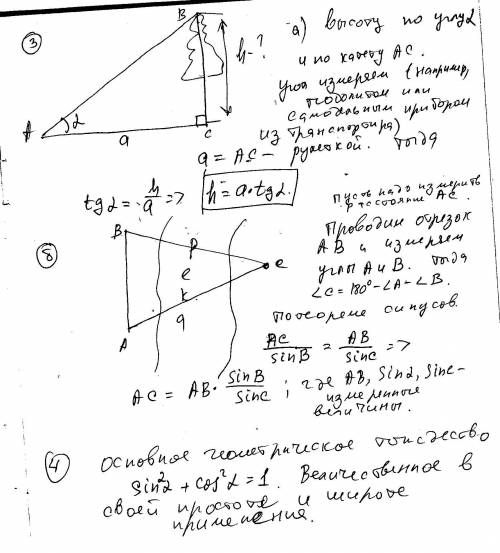 3
B
A
α
a
C
h-?
а) высоту по углу α
и по катету AC.
угол измеряем (например,
теодолитом или
самодельным прибором
из транспортира)
a = AC - рулеткой. Тогда
tg α = h/a => h = a·tg α.
8
B
A
C
р
е
к
а
Пусть надо измерить
расстояние AC.
Проводим отрезок
AB и измеряем
углы A и B. Тогда
∠C = 180° - ∠A - ∠B.
По теореме синусов.
AC/sin B = AB/sin C =>
AC = AB · sin B/sin C ; где AB, sin α, sin C -
измеренные
величины.
4
Основное геометрическое тождество
sin²α + cos²α = 1. Величественное в
своей простоте и широте
применения.